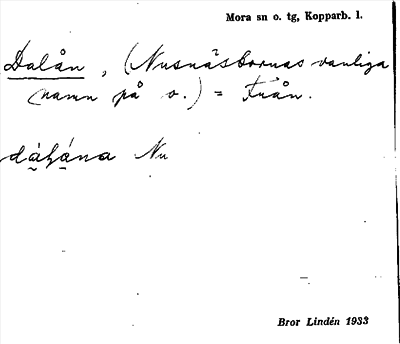 Mora sn o. tg, Kopparb. l.
Dalån, (Nusnäsbornas vanliga
namn på o.) = Från.
dáhána Nu
Bror Lindén 1933